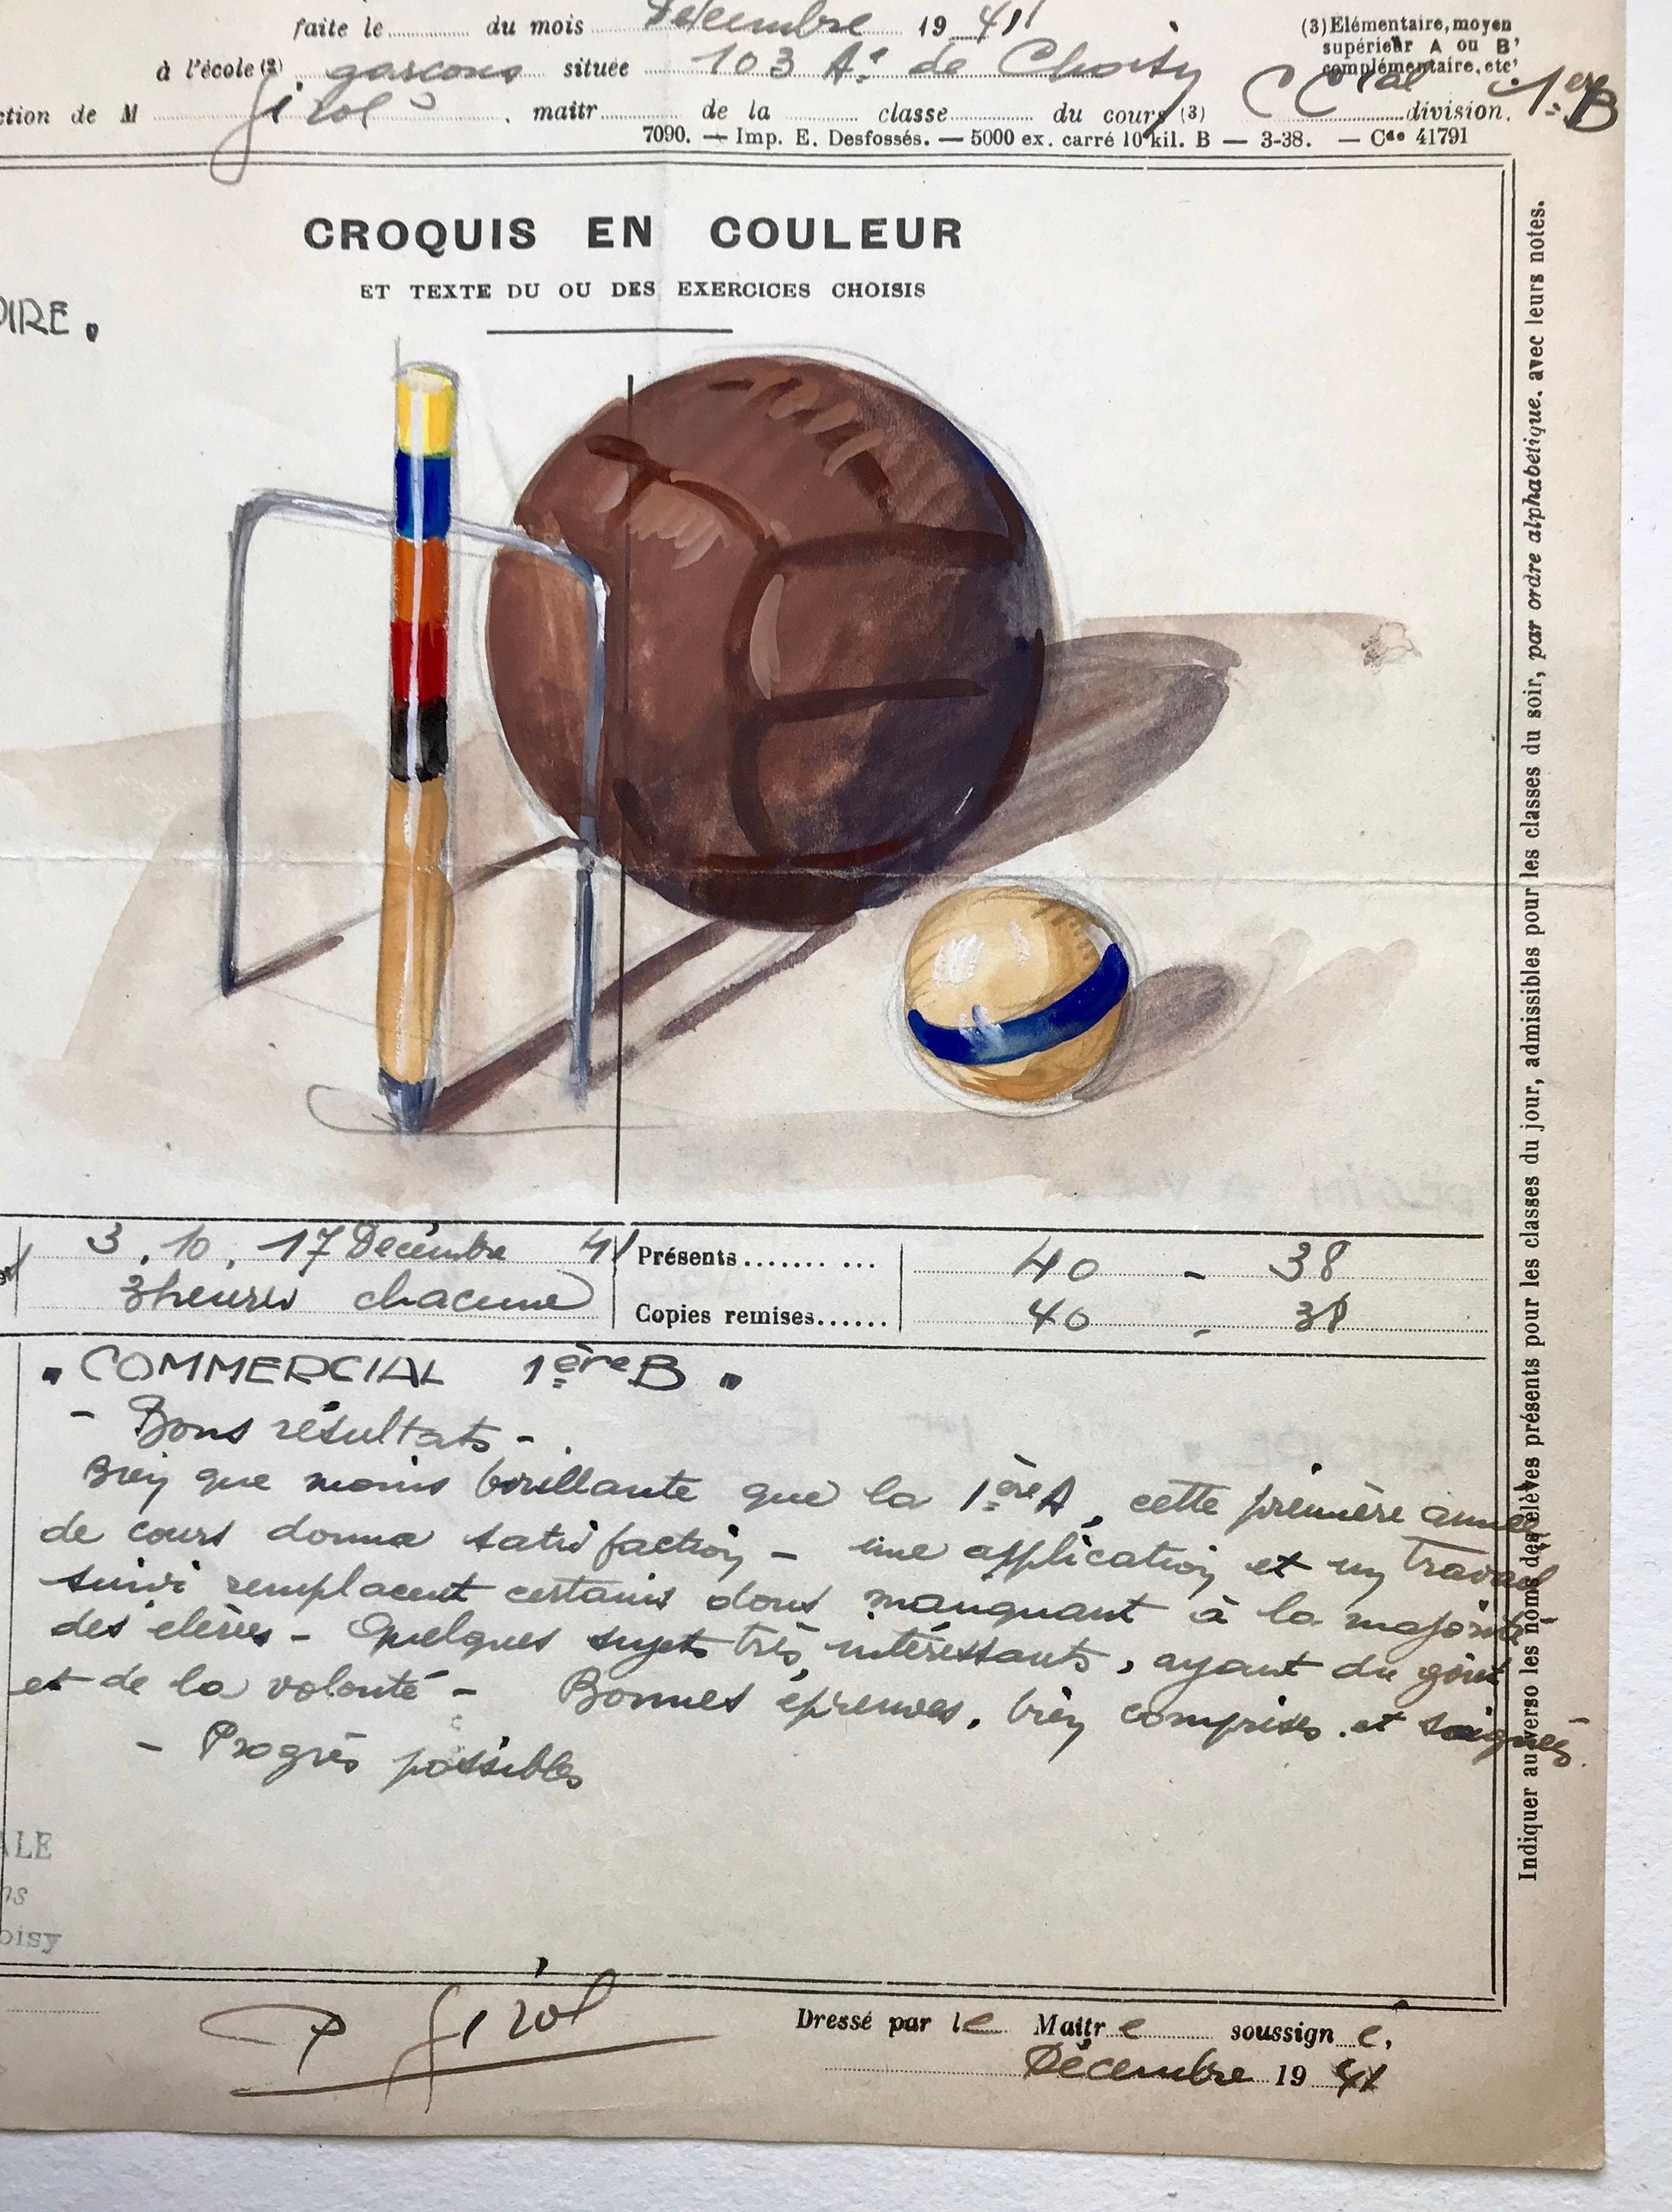 faite le ............ du mois Décembre 19 41
(3) Élémentaire, moyen
supérieur A ou B,
complémentaire, etc.
à l'école (2) garçons située 103 Av. de Choisy
ction de M Girol. maitr ............ de la ............ classe ............ du cours (3) C Cial 1ère B division.
7090. — Imp. E. Desfossés. — 5000 ex. carré 10 kil. B — 3-38. — Cde 41791
CROQUIS EN COULEUR
ET TEXTE DU OU DES EXERCICES CHOISIS
OIRE.
3, 10, 17 Décembre 41
3 heures chacune
Présents.......... 40 - 38
Copies remises...... 40 - 38
. COMMERCIAL 1ère B .
- Bons résultats -
Bien que moins brillante que la 1ère A, cette première année
de cours donna satisfaction - une application et un travail
suivi remplacent certains dons manquant à la majorité
des elèves - Quelques sujets très intéressants, ayant du goût
et de la volonté - Bonnes épreuves, bien comprises et soignées.
- Progrès possibles
ALE
ns
oisy
P Girol
Dressé par le Maitre soussigné,
Décembre 19 41
Indiquer au verso les noms des élèves présents pour les classes du jour, admissibles pour les classes du soir, par ordre alphabétique, avec leurs notes.